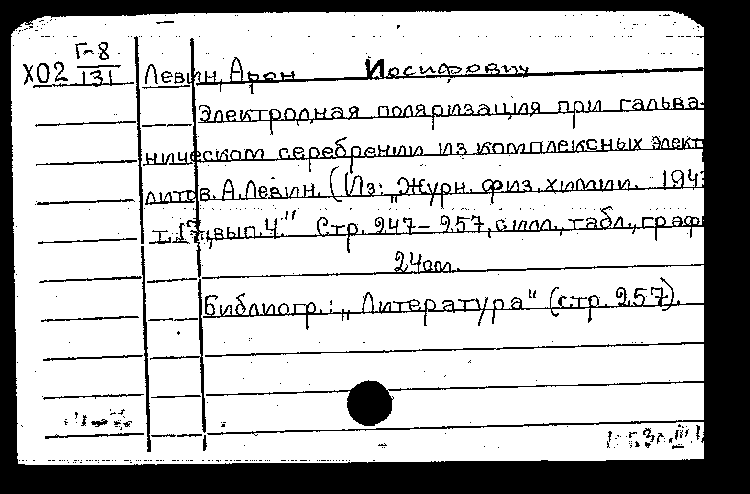 Х02 Г-8
131
Левин, Арон Иосифович
Электродная поляризация при гальва-
ническом серебрении из комплексных элект
литов. А. Левин. (Из: "Журн. физ. химии. 194
т. 17, вып. 4." Стр. 247-257, с илл., табл., граф
24 см.
Библиогр.: "Литература" (стр. 257).